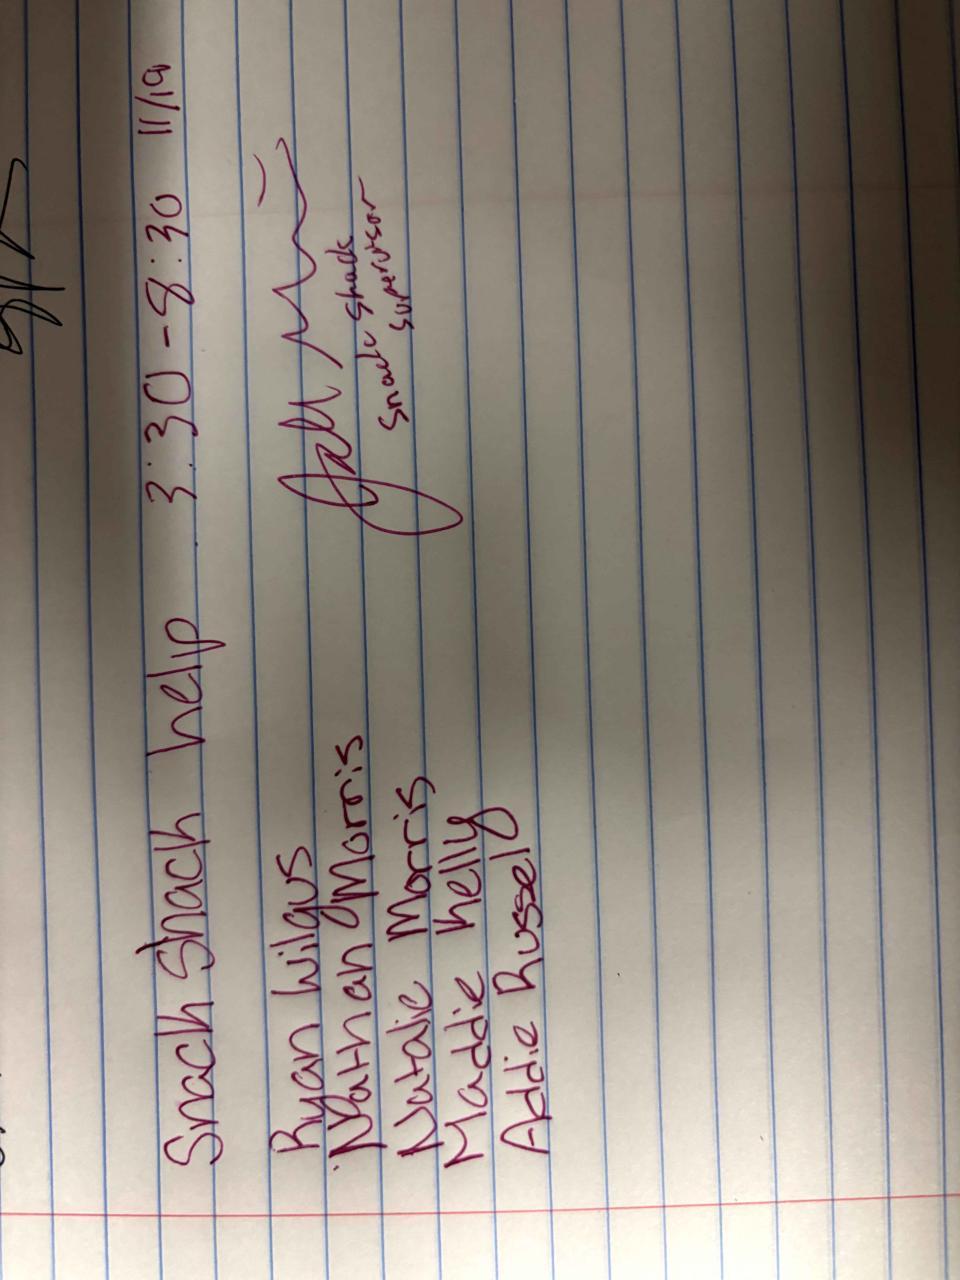 Snack Shack help 3:30-8:30 11/19
Ryan Wilgus
Nathan Morris
Natalie Morris
Maddie Kelly
Addie Russell
Snack Shack
Supervisor